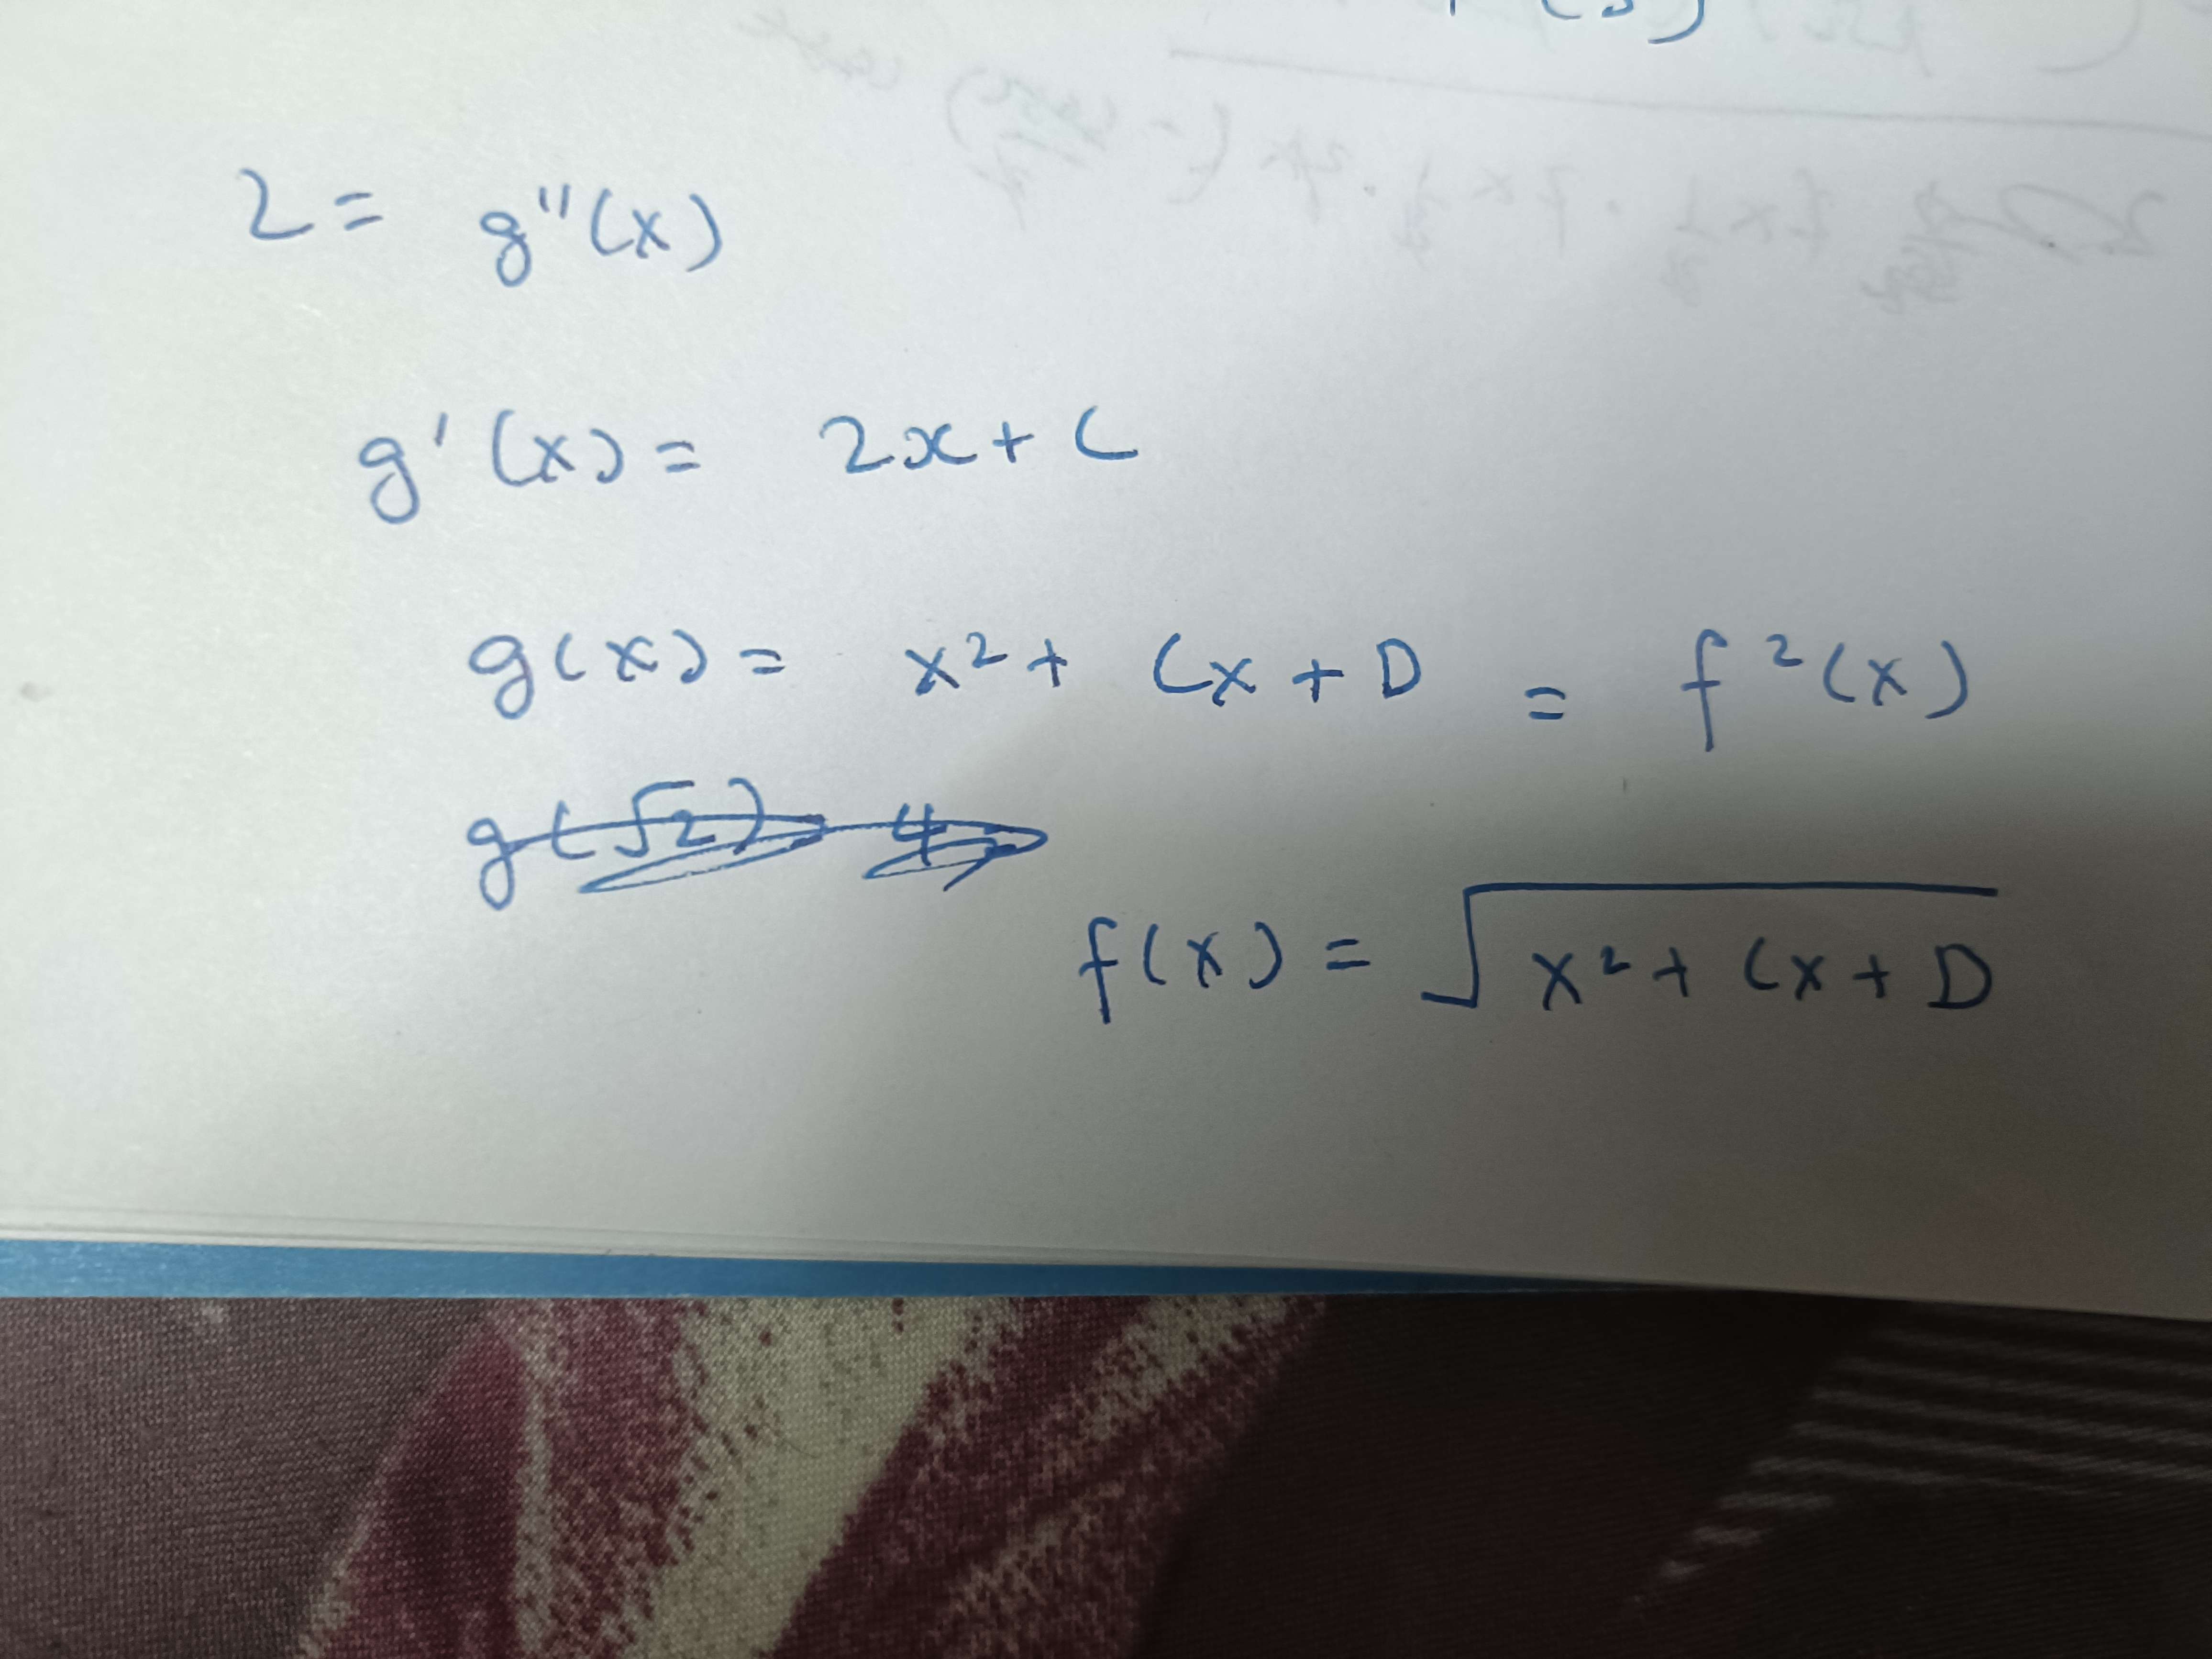 2 = g''(x)
g'(x) = 2x + C
g(x) = x² + Cx + D = f²(x)
g(√2) 4
f(x) = √x² + Cx + D